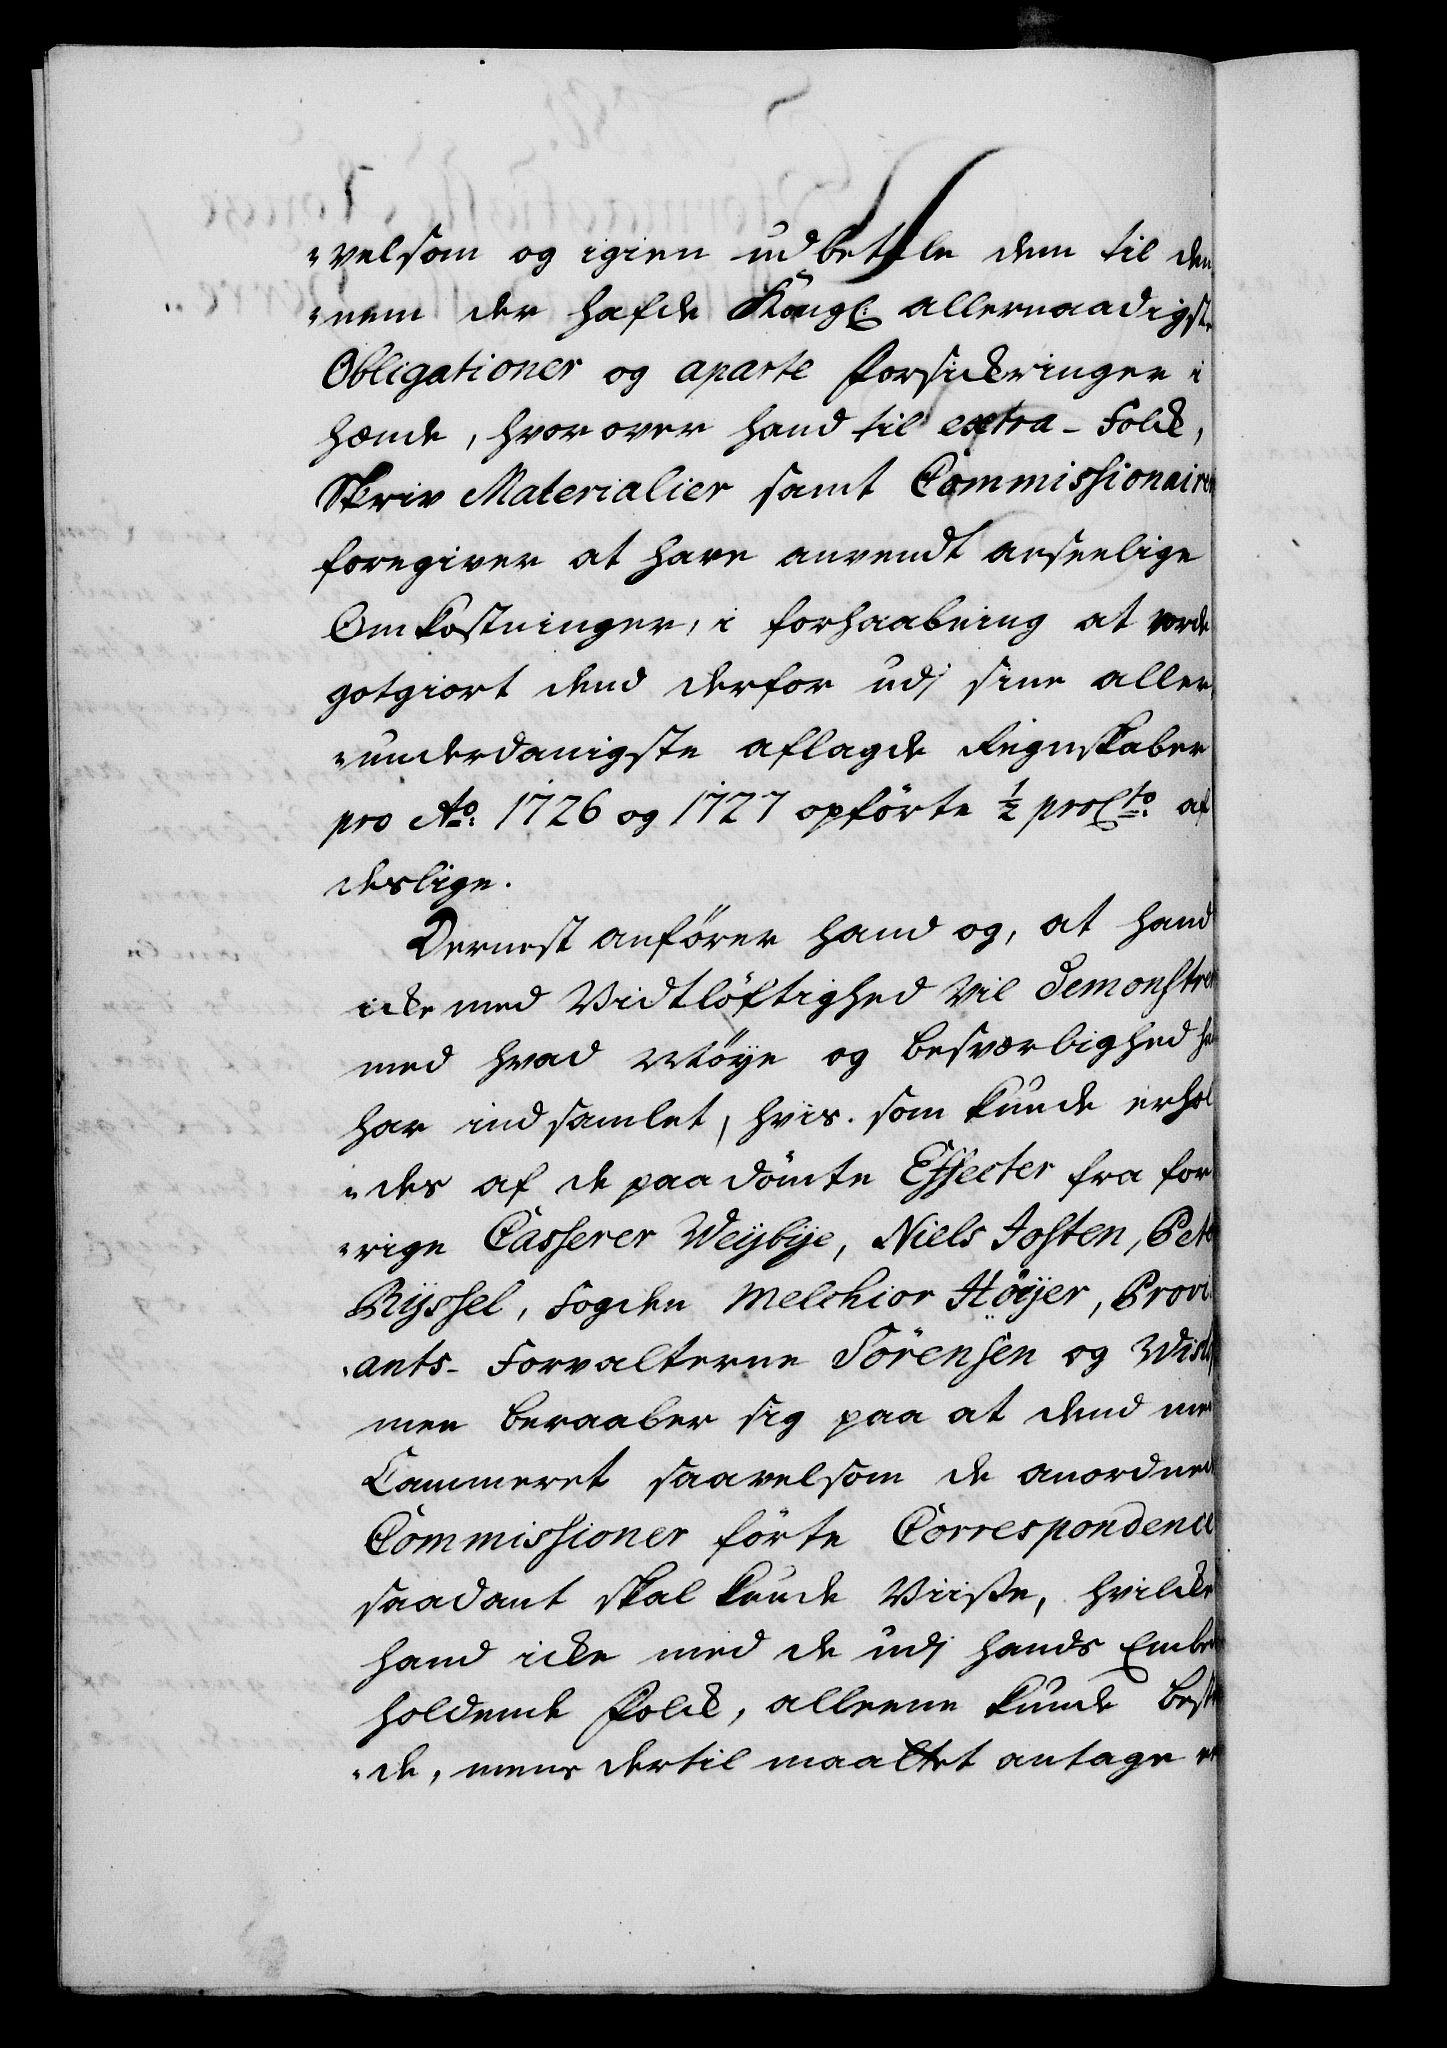 "velsom og igien udbetale dem til den
"nem der hafde Kongl: allernaadigste
Obligationer og aparte forsickringer i
hænde, hvorover hand til extra-Folck,
Skriv Materialier samt Commissionairer
foregiver at have anvendt anseelige
Omkostninger, i forhaabning at vorde
gotgiort dend derfor udj sine aller
"underdanigste aflagde Regnskaber
pro Ao: 1726 og 1727 opförte ½ proCto: af
deslige.
Dernest anförer hand og, at hand
icke med Vidtlöftighed vil demonstre
med hvad Möye og besværlighed ha
har indsamlet, hvis. som kunde erhol
"des af de paadömte Effecter fra for
"rige Casserer Weybye, Niels Josten, Pete
Ryssel, Fogden Melchior Höyer, Provi
"ants-Forvalterne Sörensen og
men beraaber sig paa at dend med
Cammeret saavelsom de anordned
Commissioner förte Correspondence
saadant skal kunde Viisse, hvilcke
hand icke med de udj hands Embe
holdende folck, alleene kunde best
"de, mens dertil maattet antage